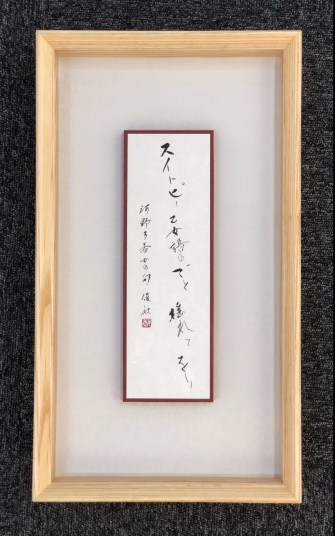 スイトピー乙女のごと揺れてをり
河野多希女の句